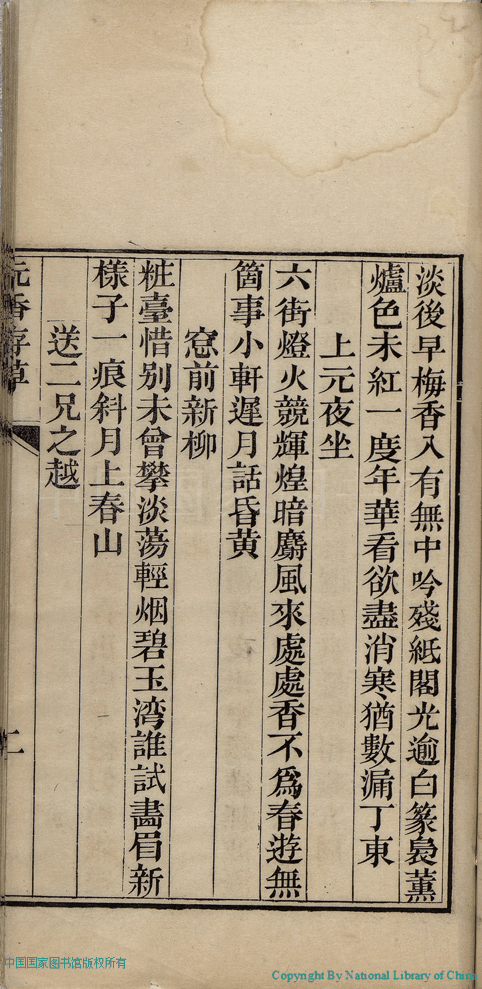 淡後早梅香入有無中吟殘紙閣光逾白篆裊薰
爐色未紅一度年華看欲盡消寒猶數漏丁東
上元夜坐
六街燈火競輝煌暗麝風來處處香不爲春遊無
箇事小軒遲月話昏黄
窓前新柳
粧臺惜别未曾攀淡蕩輕烟碧玉湾誰試畵眉新
樣子一痕斜月上春山
送二兄之越
香存草
二
中国国家图书馆版权所有
Copyright By National Library of China